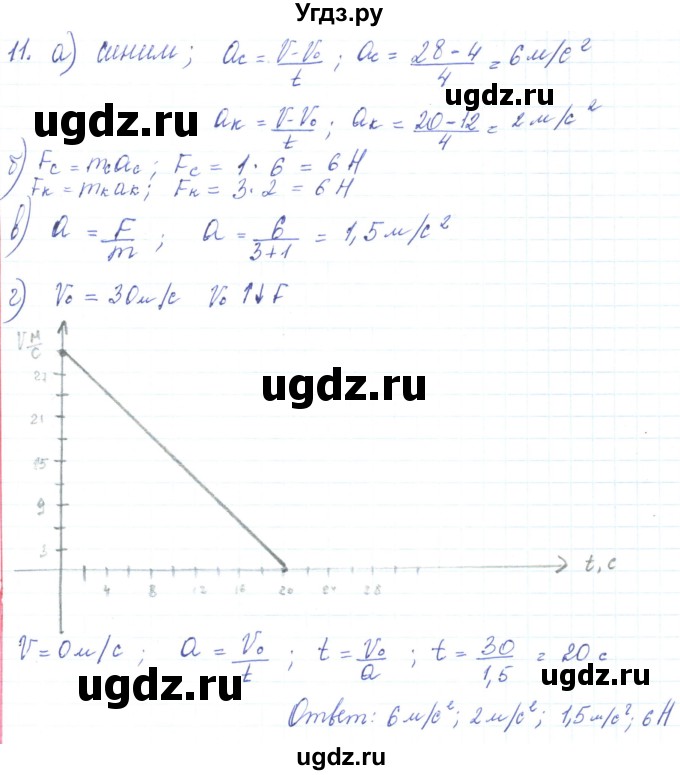 Угдз.ру
11. а) синим; aс = V-V₀/t; aс = 28-4/4 = 6 м/с²
ugdz.ru ugdz.ru
aк = V-V₀/t; aк = 20-12/4 = 2 м/с²
б) Fс = mсaс; Fс = 1·6 = 6 Н
Fк = mкaк; Fк = 3·2 = 6 Н
в) a = F/m; a = 6/3+1 = 1,5 м/с²
ugdz.ru
г) V₀ = 30 м/с V₀ ↑↓ F
V м/с
27
ugdz.ru
21
15
9
ugdz.ru
3
4 8 12 16 20 24 28 t, с
V = 0 м/с; a = V₀/t; t = V₀/a; t = 30/1,5 = 20 с
ugdz.ru ugdz.ru
Ответ: 6 м/с²; 2 м/с²; 1,5 м/с²; 6 Н
ugdz.ru